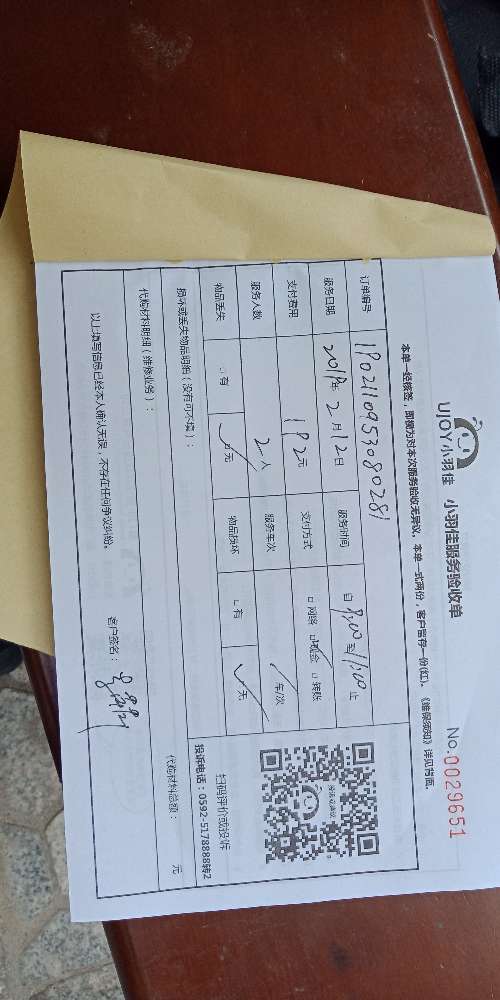 UJOY小羽佳 小羽佳服务验收单 No.0029651
本单一经核签，即视为对本次服务验收无异议。本单一式两份，客户留存一份(红)。《维保须知》详见背面。
订单编号 1902110953080281
服务日期 2019年2月12日 服务时间 自9:00至11:00止
支付费用 192元 支付方式 □网络 □现金 □转账
服务人数 2人 服务车次 车/次
物品丢失 □有 □无 物品损坏 □有 □无
扫码评价或投诉
投诉电话：0592-5178888转2
损坏或丢失物品明细（没有可不填）：
代购材料明细（维修业务）： 代购材料总额： 元
以上填写信息已经本人确认无误，不存在任何争议纠纷。 客户签名：